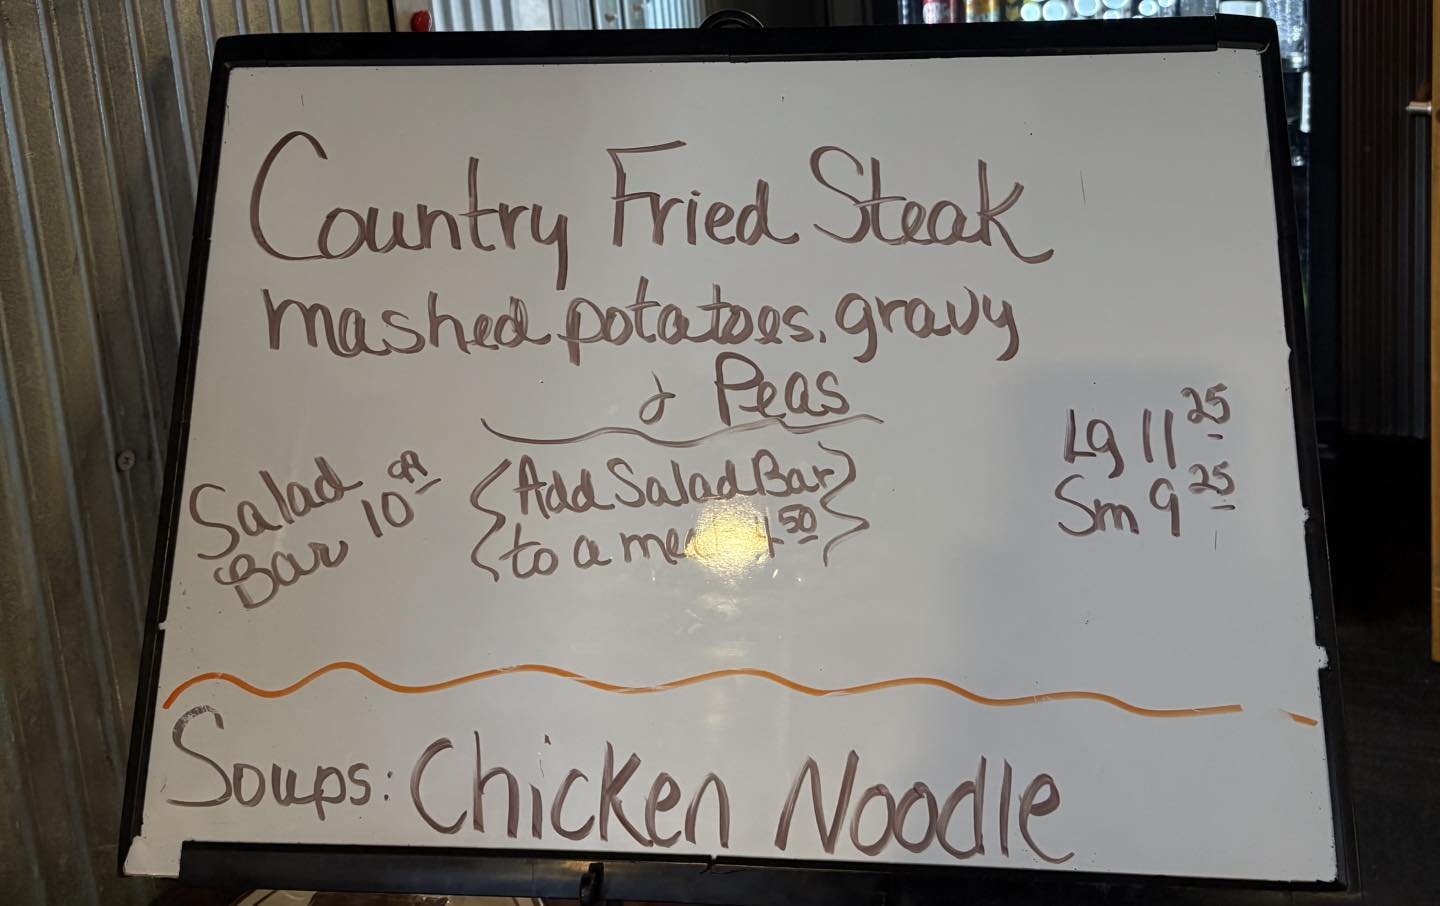 Country Fried Steak
mashed potatoes, gravy
& Peas
Lg 11 25
Sm 9 25
Salad
Bar 10
Add Salad Bar
to a 50
Soups: Chicken Noodle